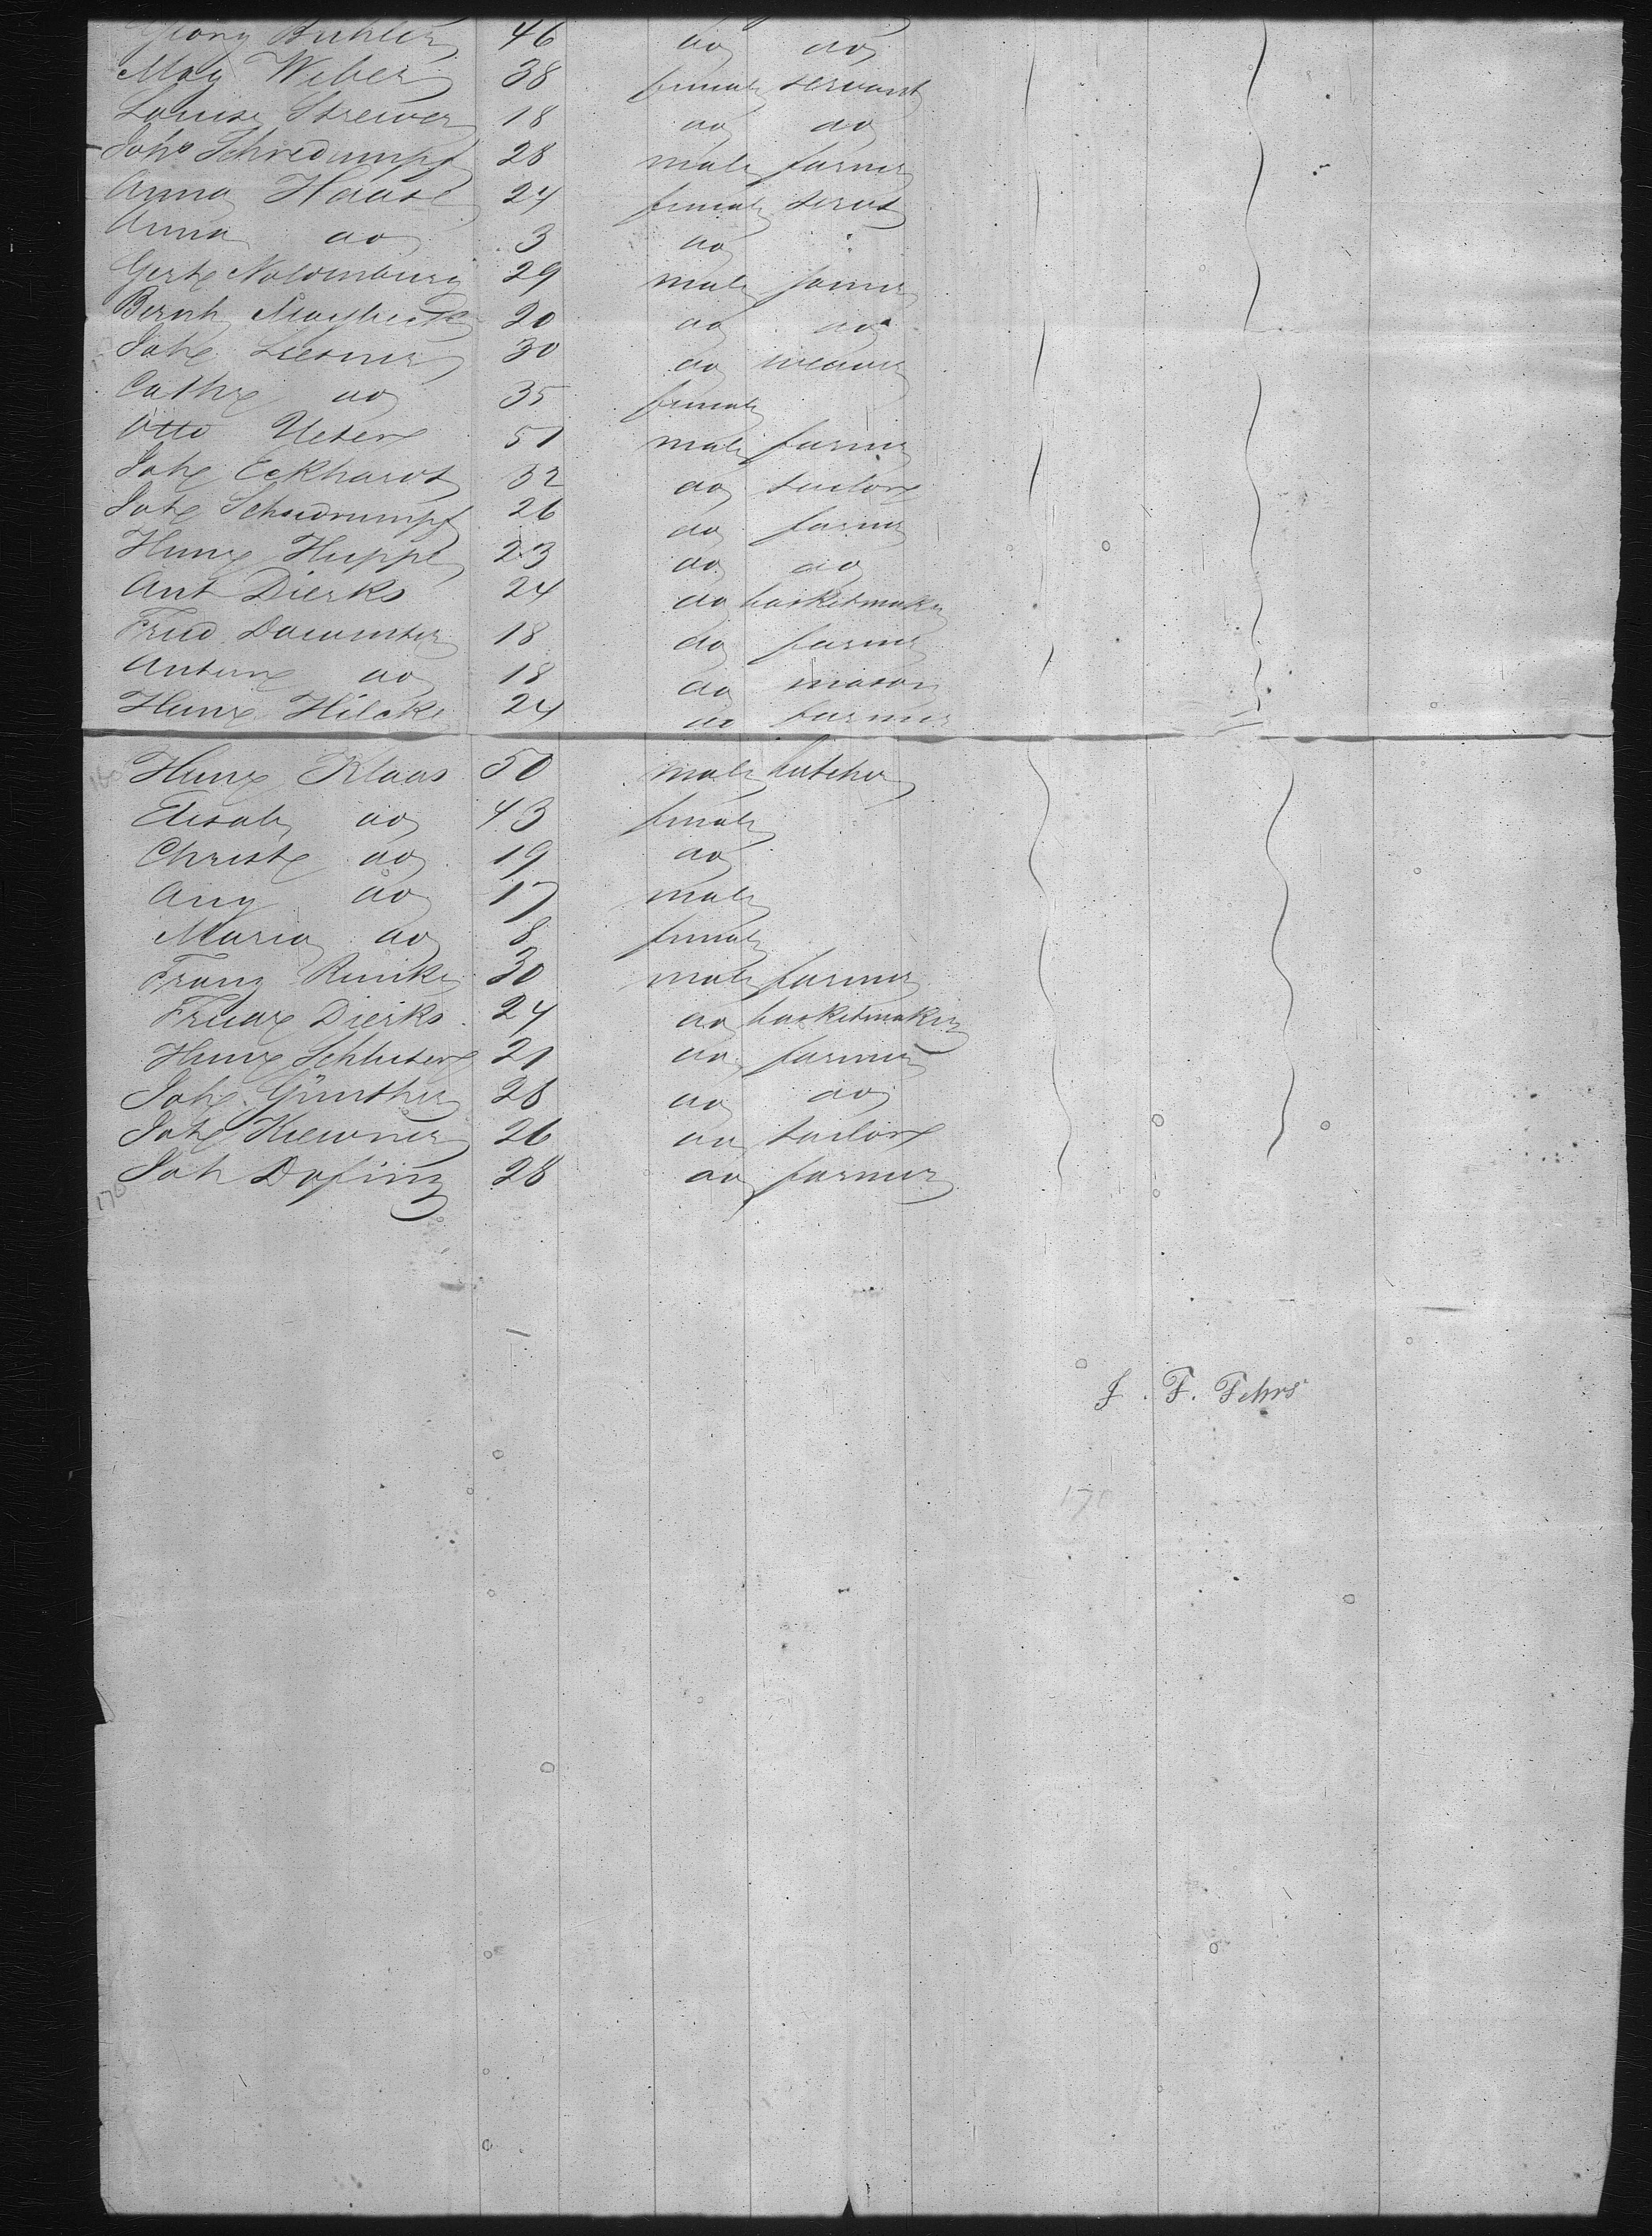 Georg Buhler 46 do do
May Weber 38 female servant
Louise Strewer 18 do do
Johs Schredumpf 28 male farmer
Anna Haase 24 female servt
Anna do 3 do
Gert 29 male farmer
Bernh 20 do do
Joh Liesner 30 do weaver
Cath do 35 female
Otto 51 male farmer
Joh Eckhardt 32 do tailor
Joh Schudrumpf 26 do farmer
Henr Huppe 23 do do
Ant Dierks 24 do basketmaker
Fried 18 do farmer
Anton do 18 do mason
Henr Hilcke 24 do farmer
Henr Klaas 50 male butcher
Elisab do 43 female
Christ do 19 do
Aug do 17 male
Maria do 8 female
Franz Reinke 30 male farmer
Friedr Dierks 24 do basketmaker
Henr Schluter 21 do farmer
Joh Günther 28 do do
Joh 26 do tailor
Joh 28 do farmer
170
J. F. Fehrs
170